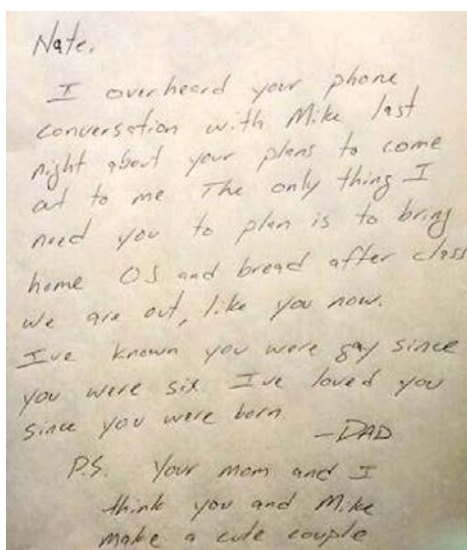 Nate,
I overheard your phone
conversation with Mike last
night about your plans to come
out to me The only thing I
need you to plan is to bring
home OJ and bread after class
We are out, like you now.
Ive known you were gay since
you were six. Ive loved you
since you were born.
—DAD
P.S. Your mom and I
think you and Mike
make a cute couple